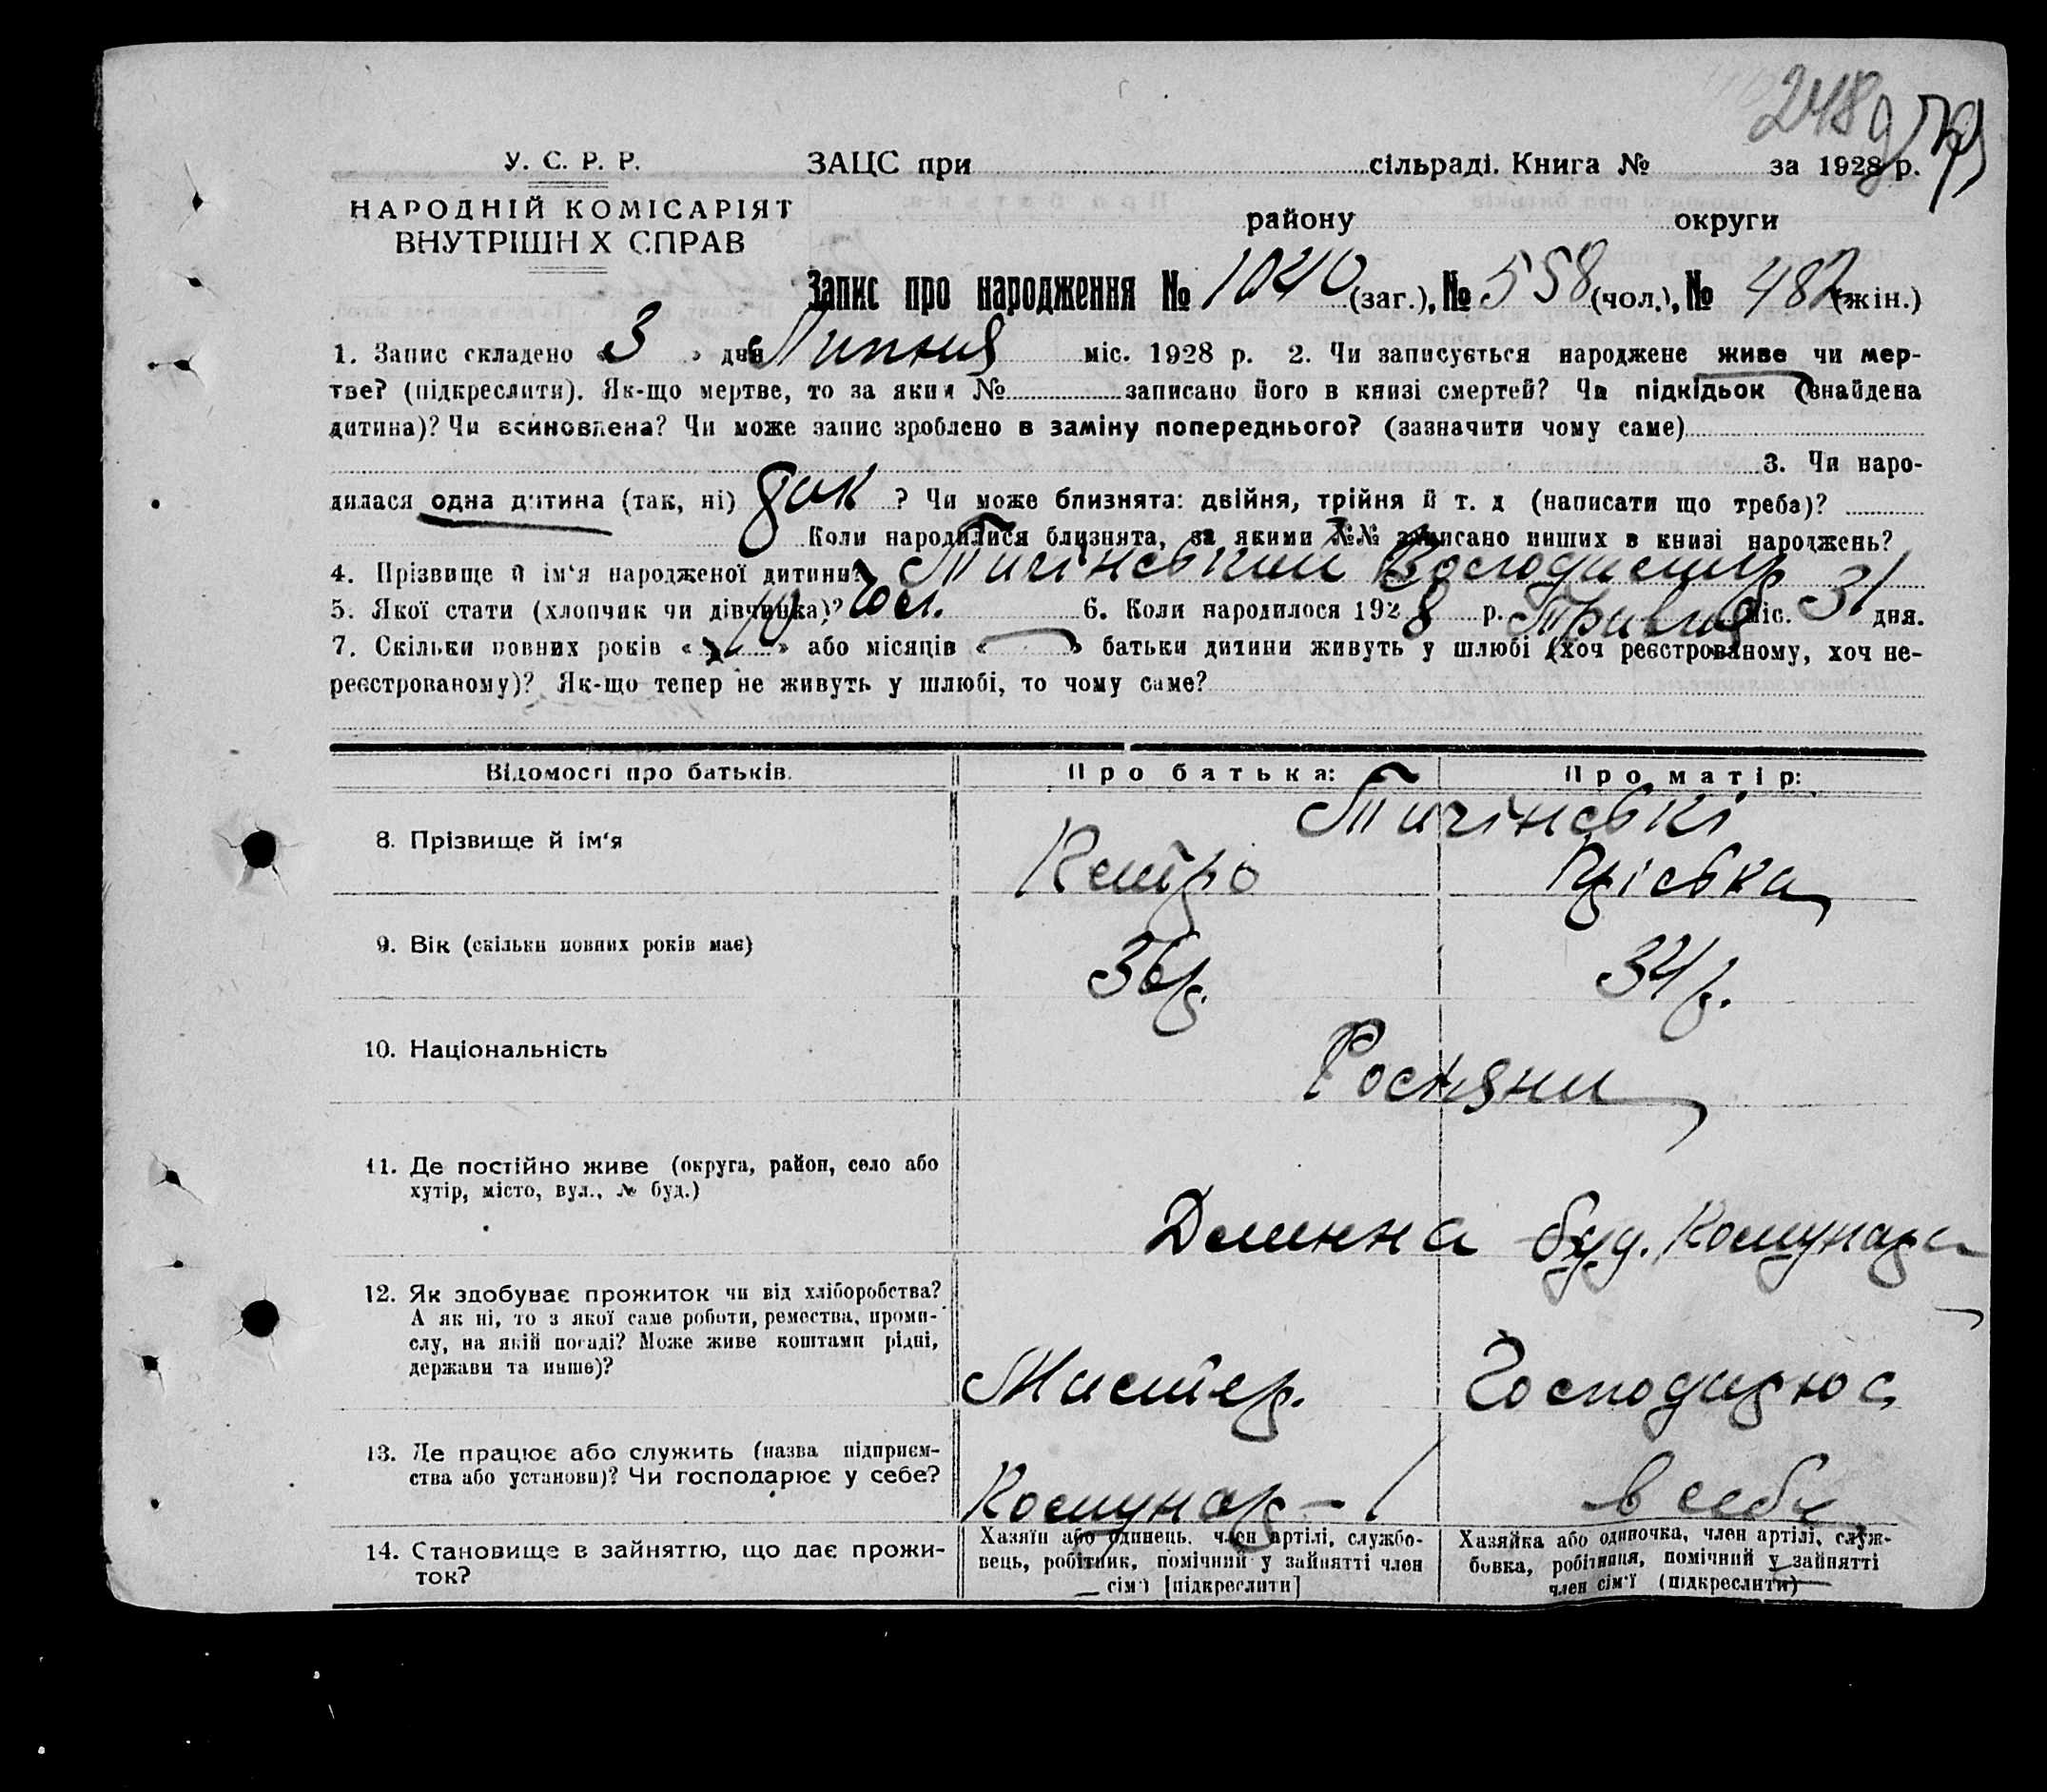 248
У. С. Р. Р.
ЗАЦС при сільраді. Книга № за 1928 р.
НАРОДНІЙ КОМІСАРІЯТ
ВНУТРІШН Х СПРАВ
району округи
Запис про народження № 1040 (заг.), № 558 (чол.), № 482 (жін.)
1. Запис складено « 3 » дня Липня міс. 1928 р. 2. Чи записується народжене живе чи мер-
тве? (підкреслити). Як-що мертве, то за яким № записано його в книзі смертей? Чи підкідьок (знайдена
дитина)? Чи всиновлена? Чи може запис зроблено в заміну попереднього? (зазначити чому саме)
3. Чи наро-
дилася одна дитина (так, ні) ? Чи може близнята: двійня, трійня й т. д (написати що треба)?
Коли народилися близнята, за якими №№ записано инших в книзі народжень?
4. Прізвище й ім‘я народженої дитини? Тичінський Володимир
5. Якої стати (хлопчик чи дівчинка)? Чол. 6. Коли народилося 1928 р. Травня міс. 31 дня.
7. Скільки повних років « » або місяців « » батьки дитини живуть у шлюбі (хоч реєстрованому, хоч не-
реєстрованому)? Як-що тепер не живуть у шлюбі, то чому саме?
Відомості про батьків. Про батька: Про матір:
Тичінські
8. Прізвище й ім‘я Петро Пріська
9. Вік (скільки повних років має) 36 р. 34 р.
10. Національність Росіяни
11. Де постійно живе (округа, район, село або
хутір, місто, вул., № буд.)
буд. Комунара
12. Як здобуває прожиток чи від хліборобства?
А як ні, то з якої саме роботи, ремества, проми-
слу, на якій посаді? Може живе коштами рідні,
держави та инше)?
Мистер. Господарює
13. Де працює або служить (назва підприєм-
ства або установи)? Чи господарює у себе?
Комунар – 1 в себе
14. Становище в зайняттю, що дає прожи-
ток?
Хазяїн або одинець. член артілі, службо-
вець, робітник, помічний у зайнятті член
сім‘ї [підкреслити]
Хазяйка або одиночка, член артілі, служ-
бовка, робітниця, помічний у зайнятті
член сім‘ї (підкреслити)